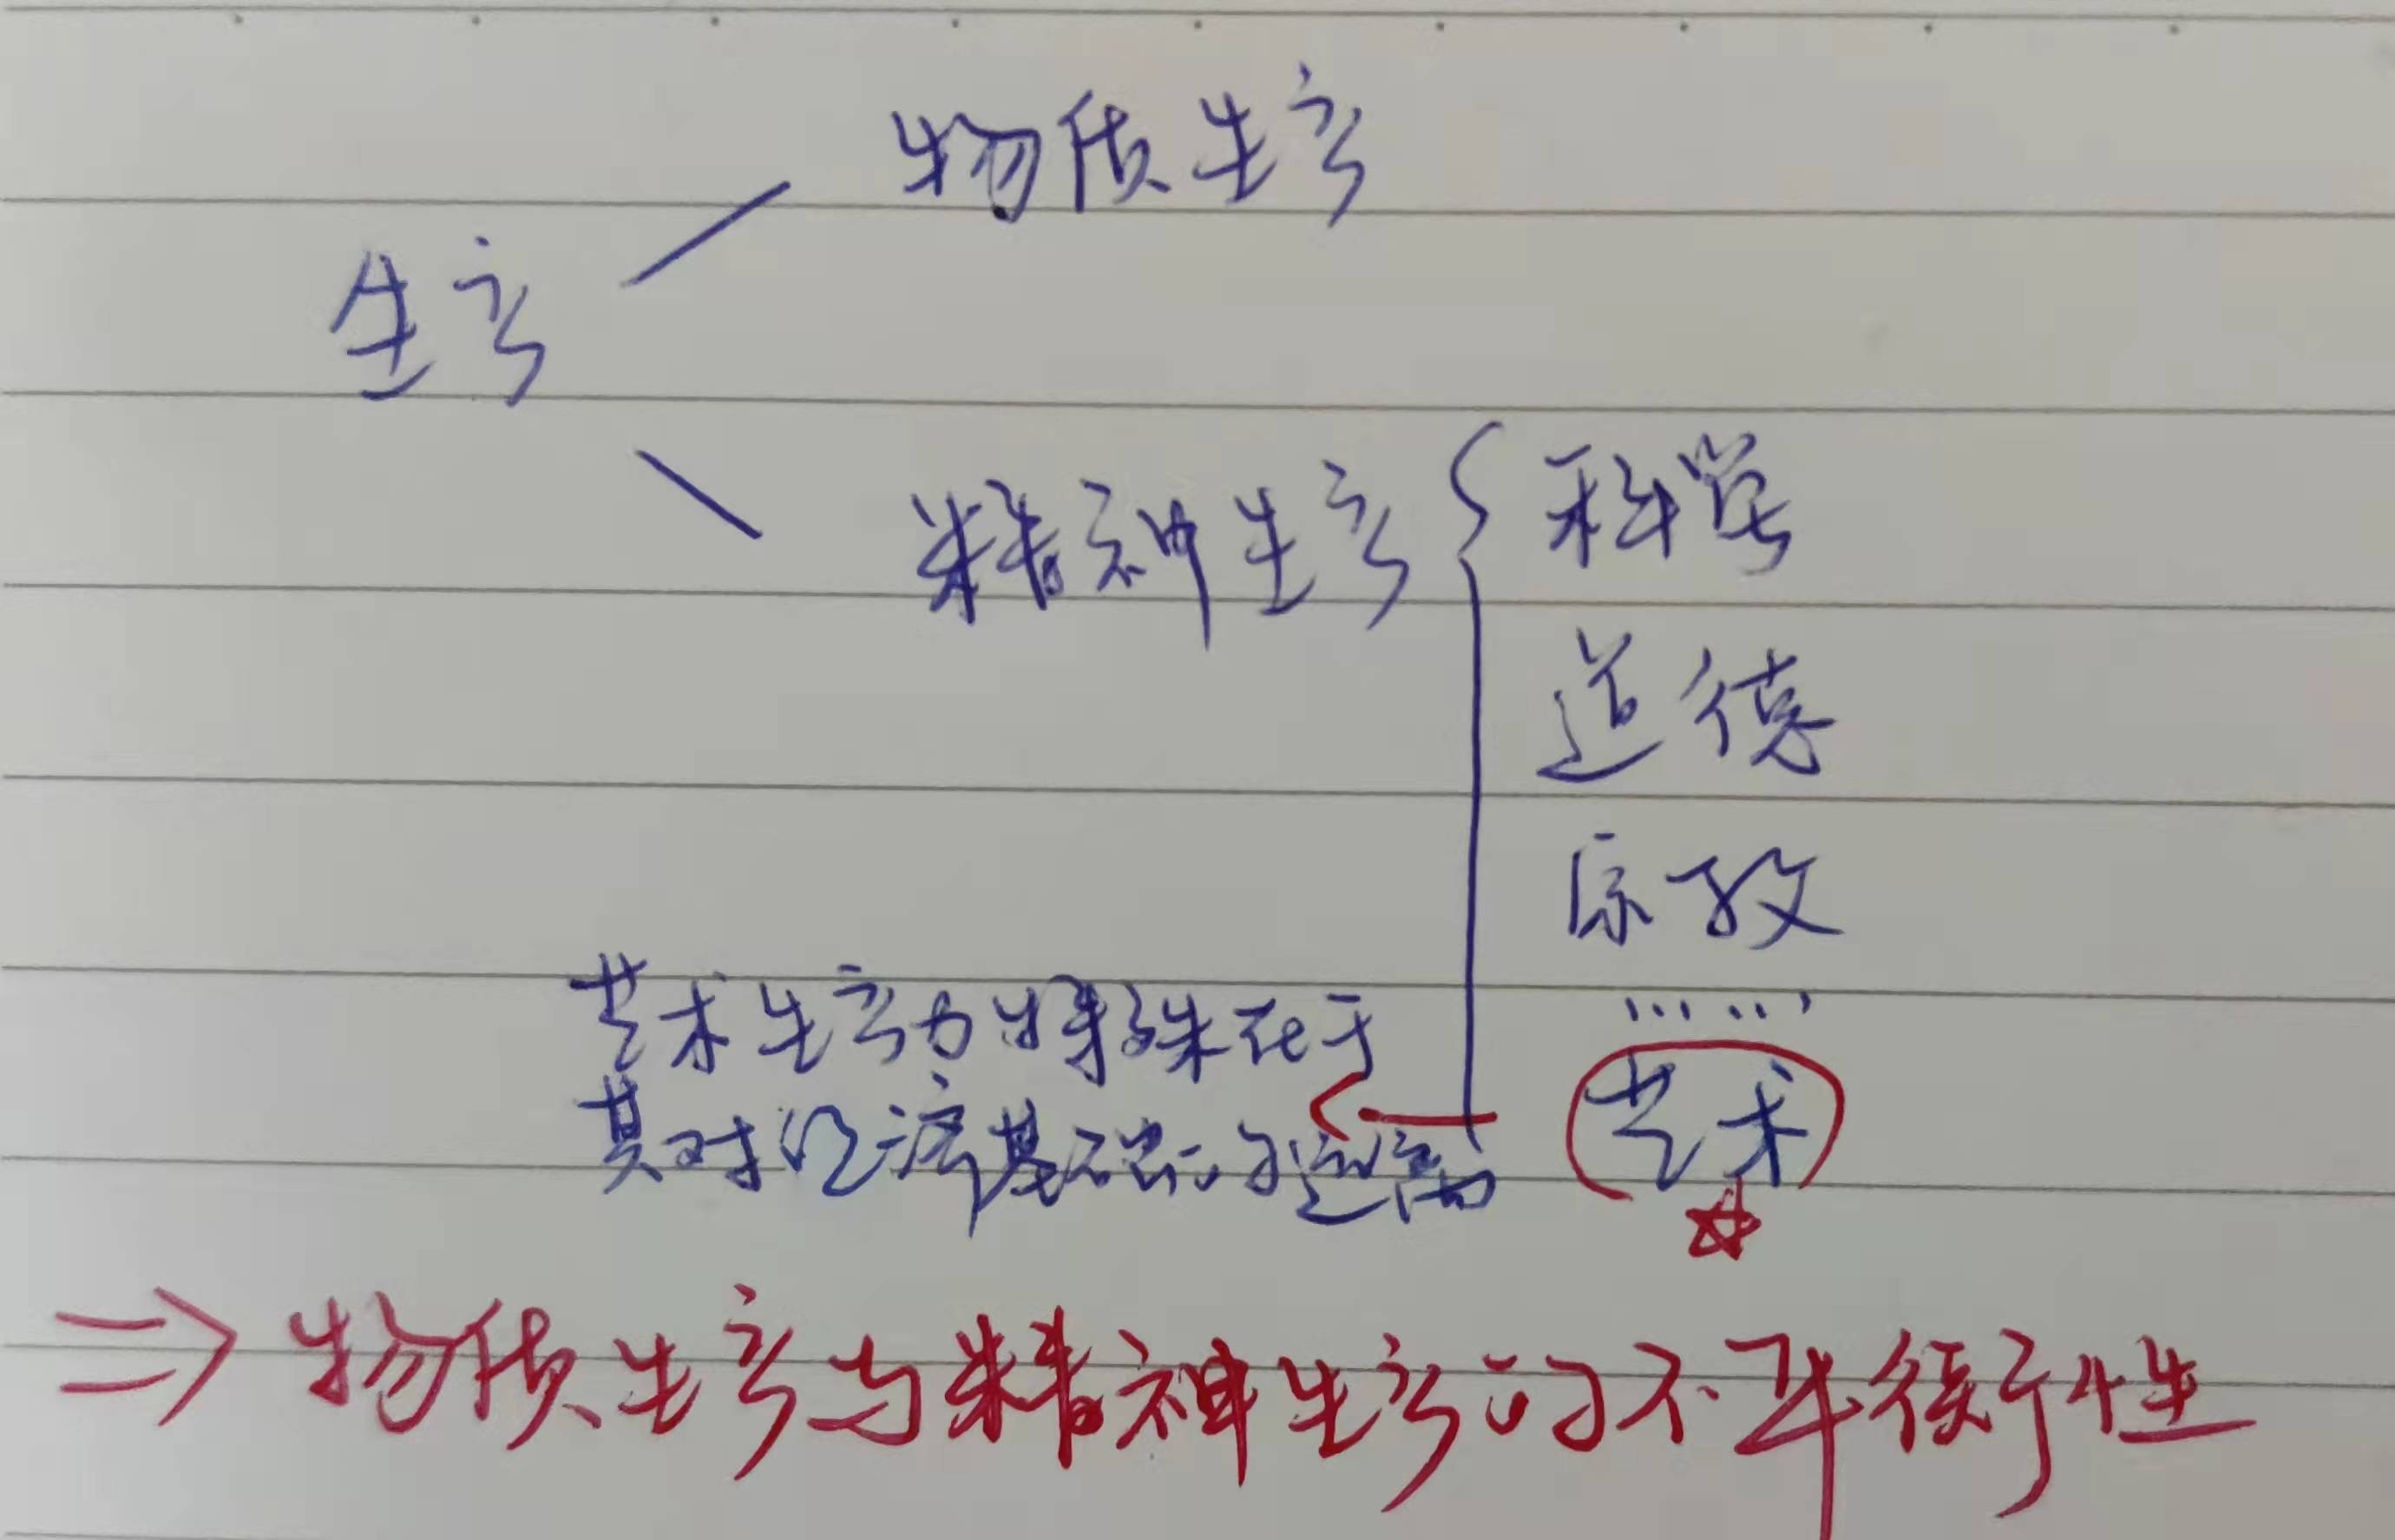 物质生产
生产
精神生产
科学
道德
宗教
……
艺术
艺术生产力特殊在于
其对经济基础的远离
⇒物质生产与精神生产的不平衡性